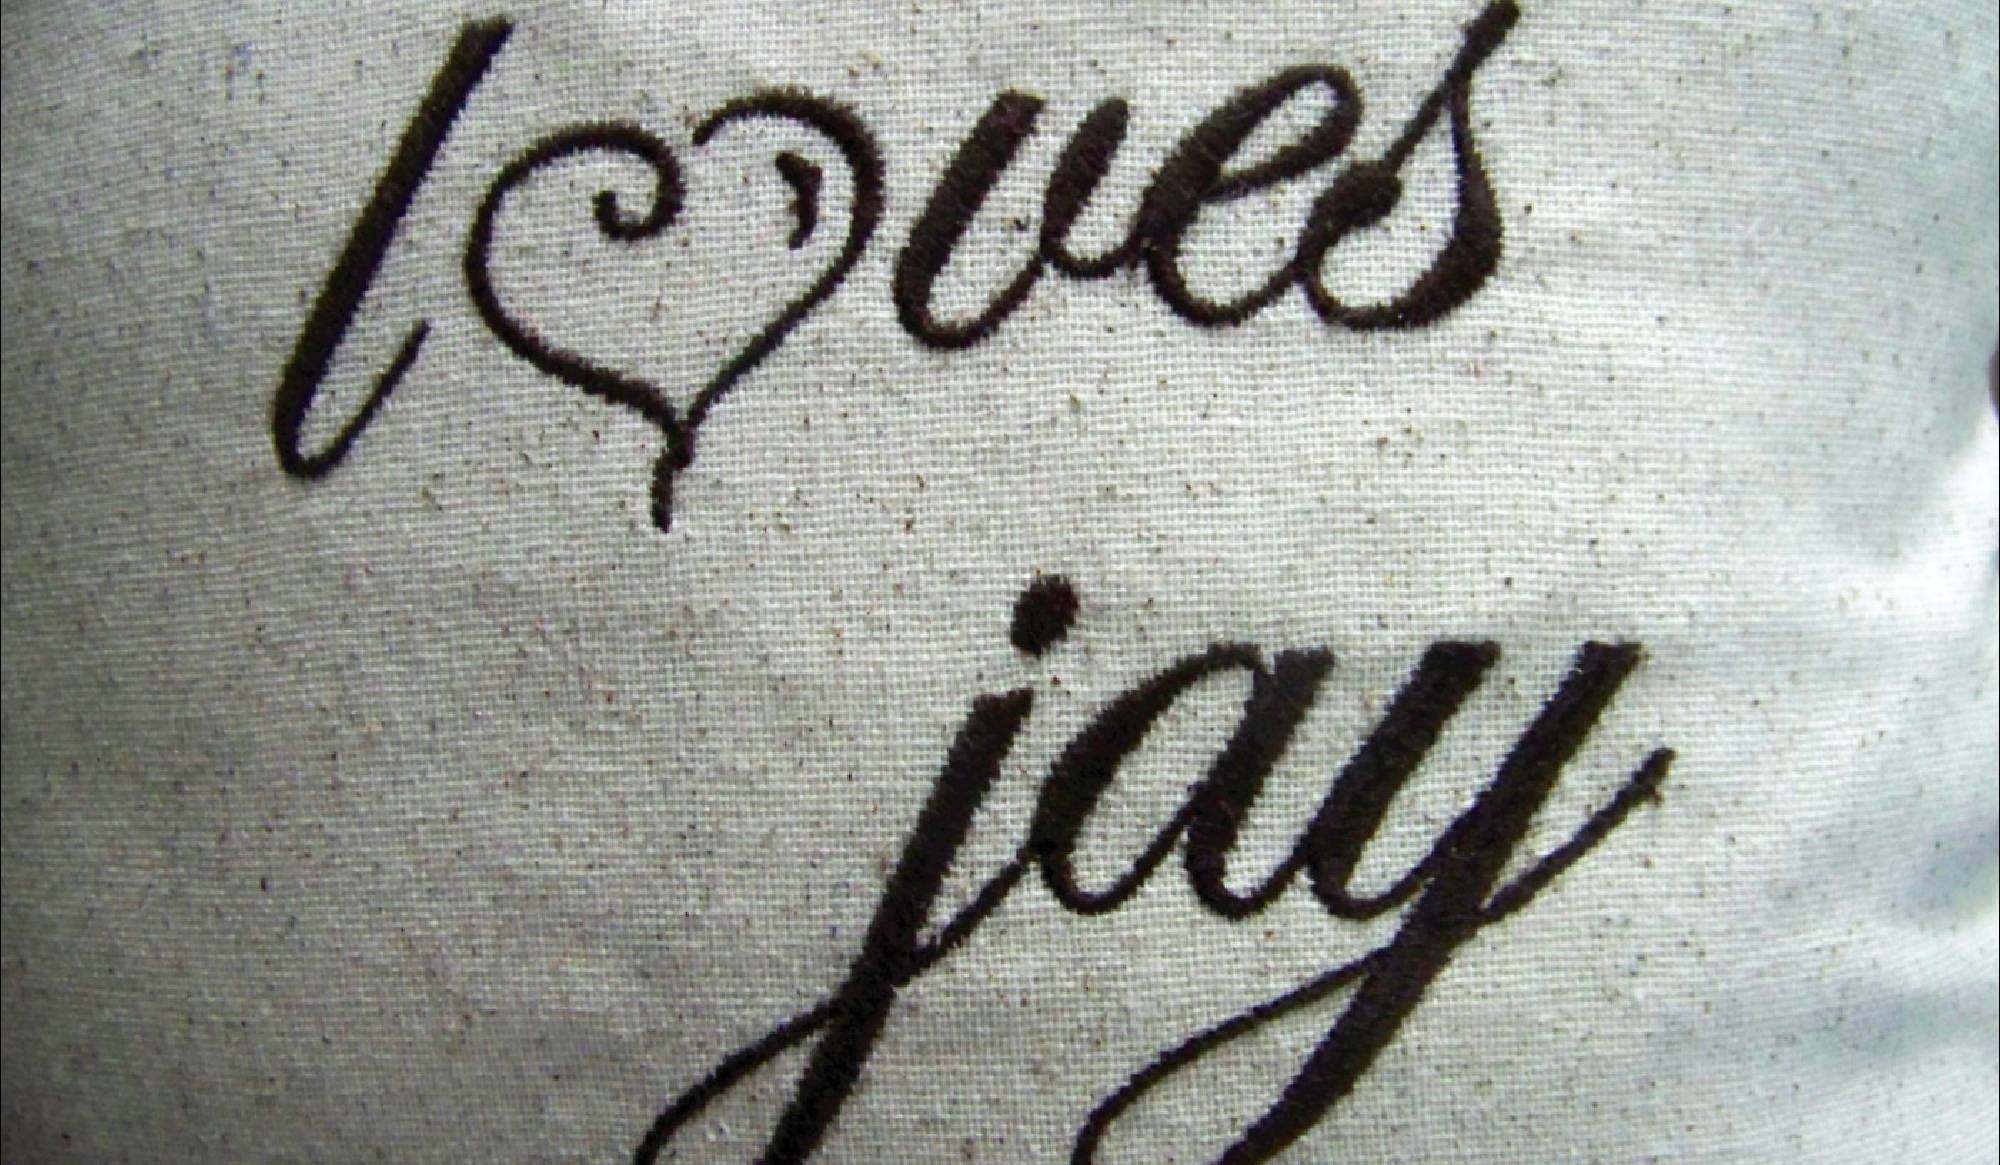 loves
jay